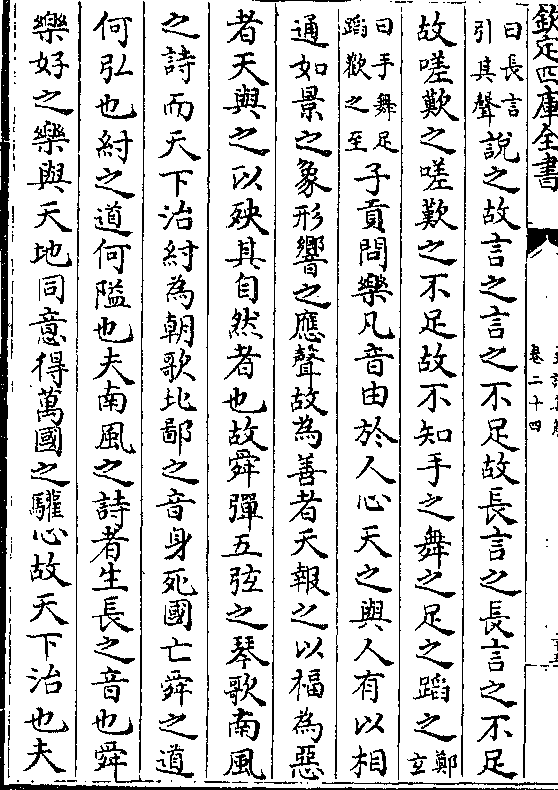 欽定四庫全書
卷二十四
曰長言引其聲說之故言之言之不足故長言之長言之不足
故嗟歎之嗟歎之不足故不知手之舞之足之蹈之鄭玄
曰手舞足蹈歡之至子貢問樂凡音由於人心天之與人有以相
通如景之象形響之應聲故為善者天報之以福為惡
者天與之以殃其自然者也故舜彈五弦之琴歌南風
之詩而天下治紂為朝歌北鄙之音身死國亡舜之道
何弘也紂之道何隘也夫南風之詩者生長之音也舜
樂好之樂與天地同意得萬國之驩心故天下治也夫